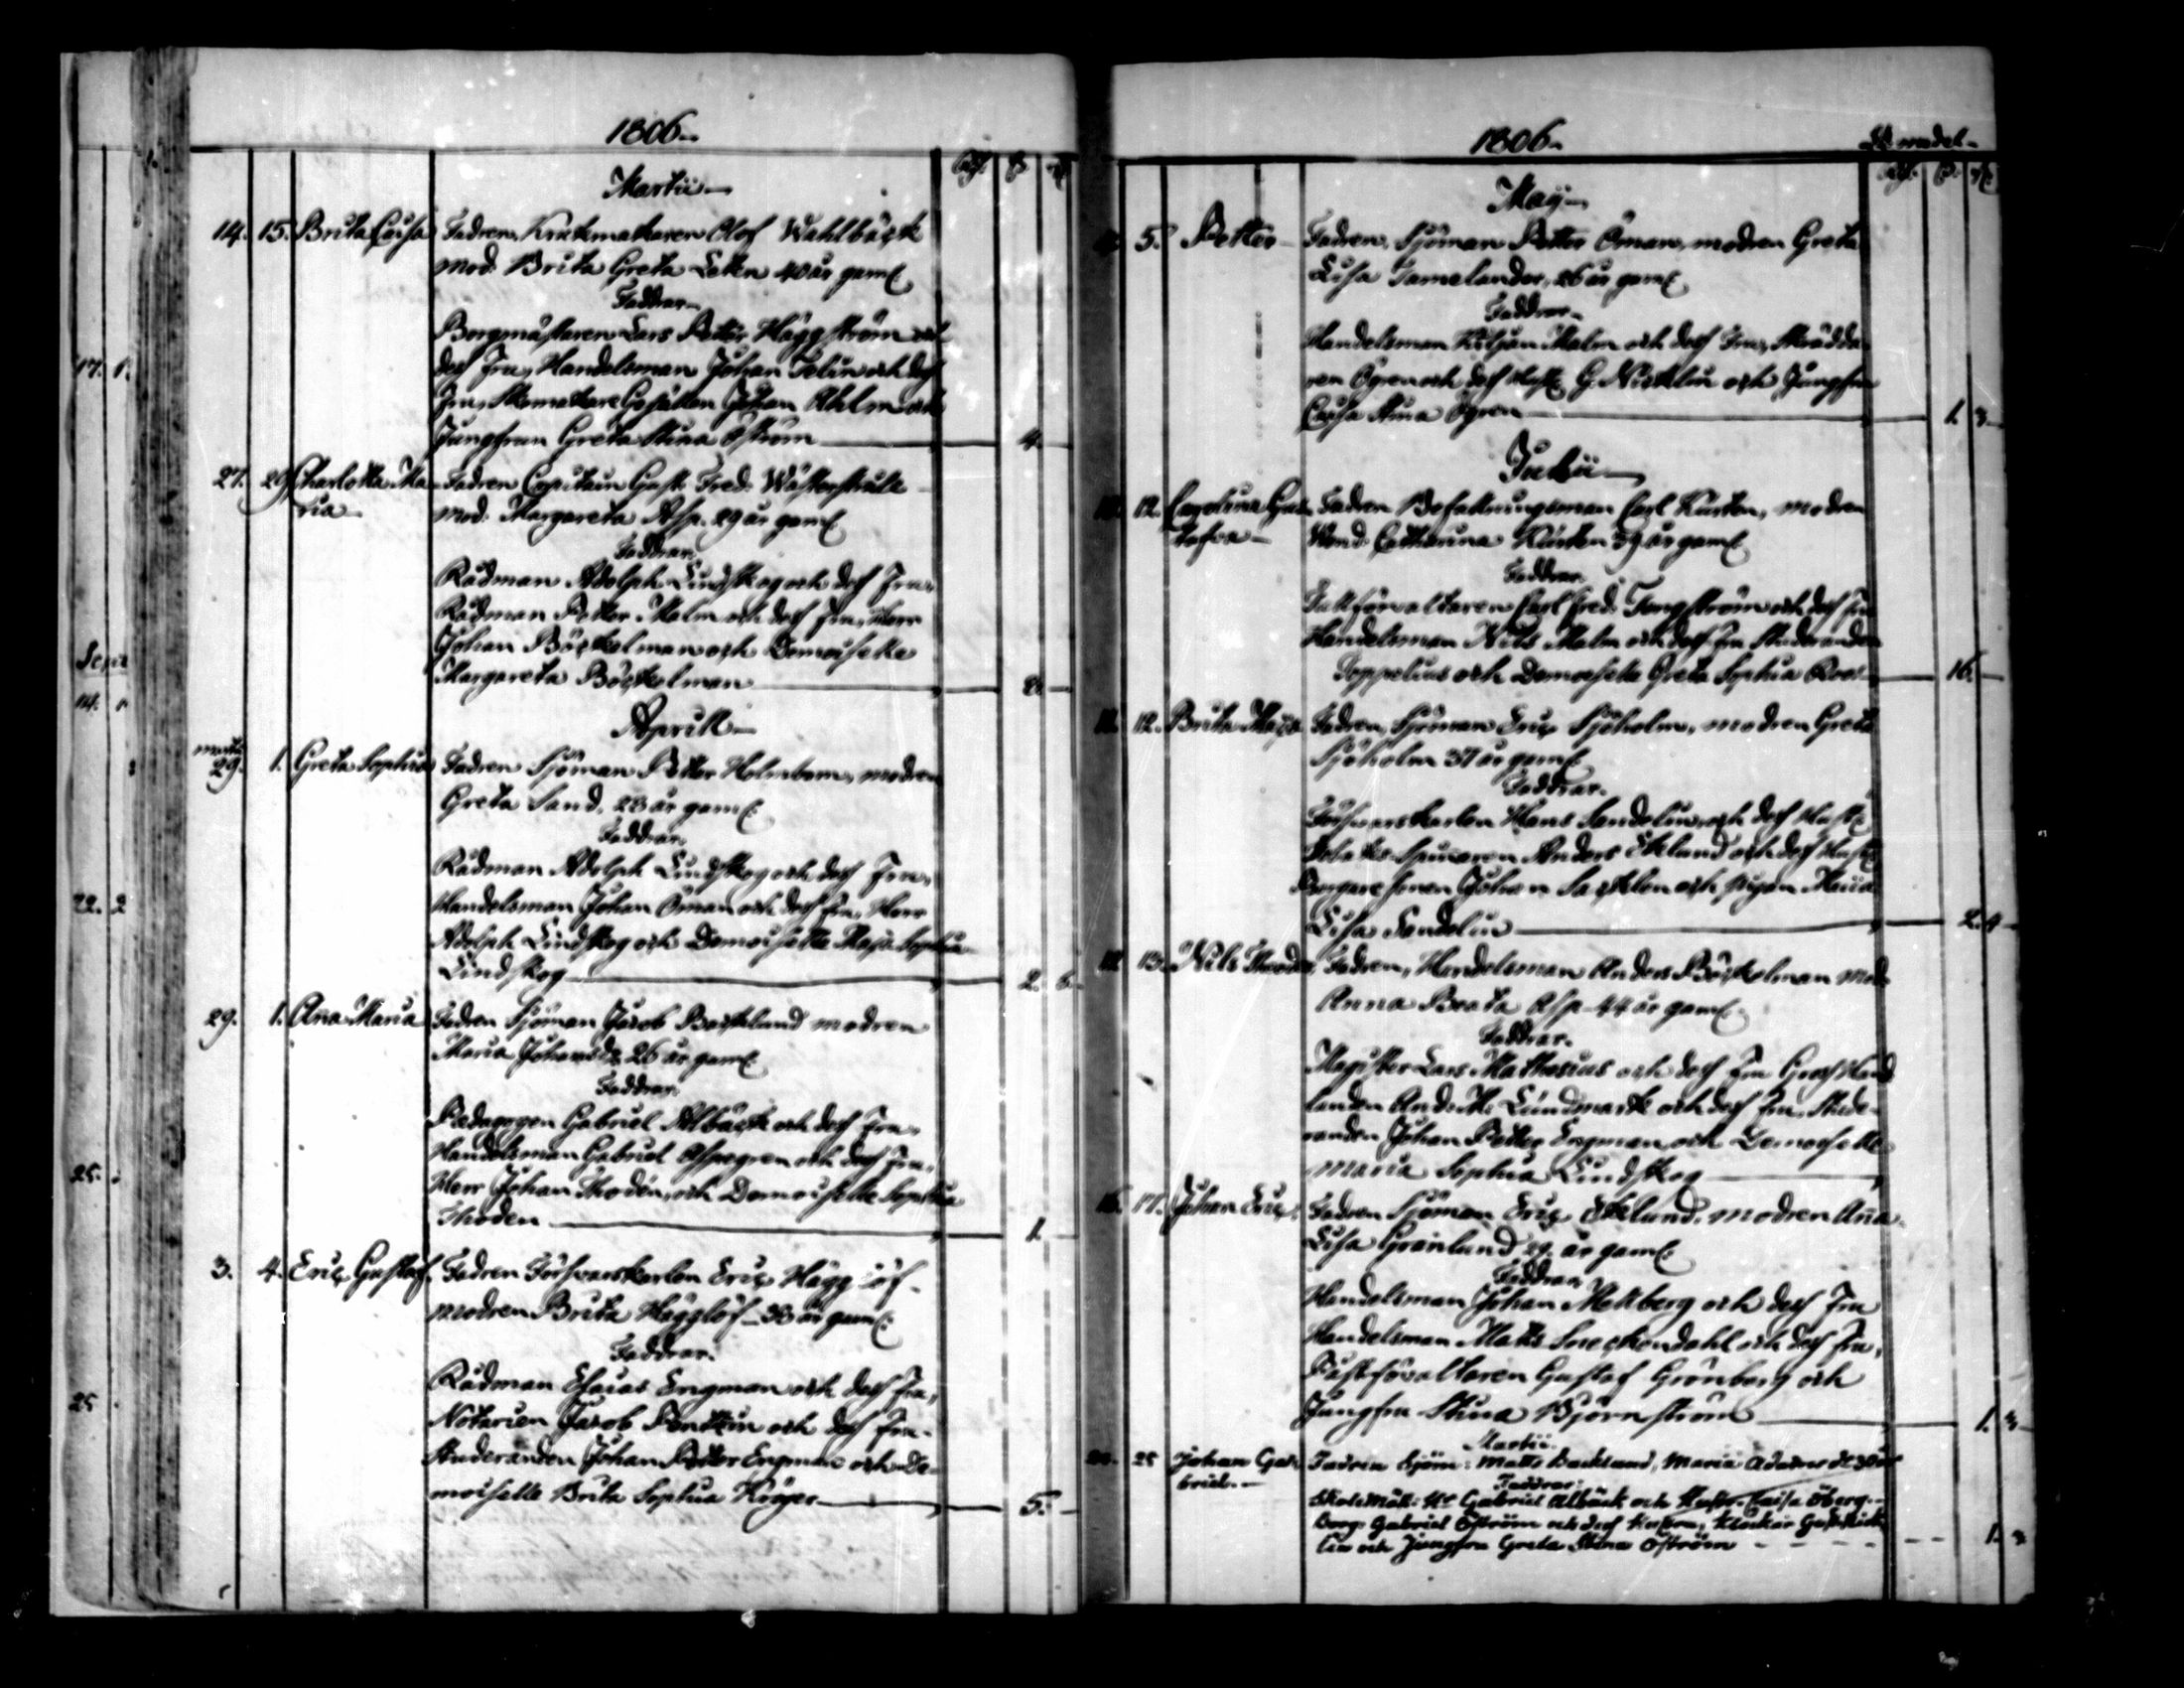 1806
Martii
14. 15. Brita Caisa Fadren, Krukmakaren Olof Wahlbäck
mod. Brita Greta 40 år gaml.
Faddrar
Borgmästaren Lars Petter Häggström och
dess Fru, Handelsman Johan Telin och dess
Fru, Skomakare Gesällen Johan Ahlm och
Jungfrun Greta Stina Öström 4.
27. 29. Charlotta Ma- Fadren Capitain Gust. Fred.
ria mod. Margareta Asp. 29 år gaml.
Faddrar
Rådman Adolph Lindskog och dess Fru,
Rådman Petter Malm och dess Fru, Herr
Johan Böckelman och Demoiselle
Margareta Böckelman 2.
Aprill
Martii
29. 1. Greta Sophia Fadren Sjöman Petter Holmbom, modren
Greta Sand. 23 år gaml.
Faddrar.
Rådman Adolph Lindskog och dess Fru,
Handelsman Johan Öman och dess Fru, Herr
Adolph Lindskog och Demoiselle Maja Sophia
Lindskog 2. 6.
29. 1. Ana Maria Fadren Sjöman Jacob Backlund modren
Maria Johansdr 26 år gaml.
Faddrar.
Pædagogen Gabriel Albäck och dess Fru,
Handelsman Gabriel Aspegren och dess Fru,
Herr Johan Thodén, och Demoiselle Sophia
Thoden 1.
3. 4. Eric Gustaf. Fadren Försvarskarlen Eric Hägglöf
modren Brita Hägglöf 33 år gaml.
Faddrar.
Rådman Esaias Engman och dess Fru,
Notarien Jacob Pontin och dess Fru
Studeranden Johan Petter Engman och De-
moiselle Brita Sophia Kröger 5.
1806
May
5. Petter Fadren, Sjöman Petter Öman, modren Greta
Lisa Tamelander, 26 år gaml.
Faddrar
Handelsman Kiljan Malm och dess Fru, Skrädda-
ren Ögren och dess Hust. G. Nicklin och Jungfru
Caisa Stina Ögren 1. 3.
Julii
12. Carolina Gus- Fadren Befallningsman Carl Kursten, modren
tafva Wend. Catharina Kürsten 39 år gaml.
Faddrar.
Tullförvaltaren Carl Fred. Tengström och dess Fru
Handelsman Nils Malm och dess Fru Studeranden
Toppelius och Demoiselle Greta Sophia Roos 16.
11. 12. Brita Maja Fadren, Sjöman Eric Sjöholm, modren Greta
Sjöholm 37 år gaml.
Faddrar.
Försvarskarlen Hans Sandelin och dess Hust.
Tobaks Spinaren Anders Eklund och dess Hust.
Borgare Sonen Johan och pigan Maria
Lisa Sandelin 2. 4
12 13. Nils Theodor, Fadren, Handelsman Anders Böckelman mod.
Anna Beata Asp 44 år gaml.
Faddrar.
Magister Lars Mathesius och dess Fru Gross Hand-
landen And. M. Lundmark och dess Fru, Stude-
randen Johan Petter Engman och Demoiselle
Maria Sophia Lindskog
16. 17. Johan Eric, Fadren Sjöman Eric Eklund, modren Ana
Lisa Grönlund 29. år gaml.
Faddrar
Handelsman Johan Mellberg och dess Fru
Handelsman Matts Sneckendahl och dess Fru,
Gustaf Grönberg och
Jungfru Stina Björnström 1. 3
Martii
25 Johan Ga- Fadren Sjöm: Matts Backlund, Maria Adamsdr 30 år
briel. Faddrar:
Skolemäst: Hr Gabriel Albäck och Hustr. Caisa Öberg
Borg: Gabriel Öström och dess Hustru,
och Jungfru Greta Stina Öström 1.